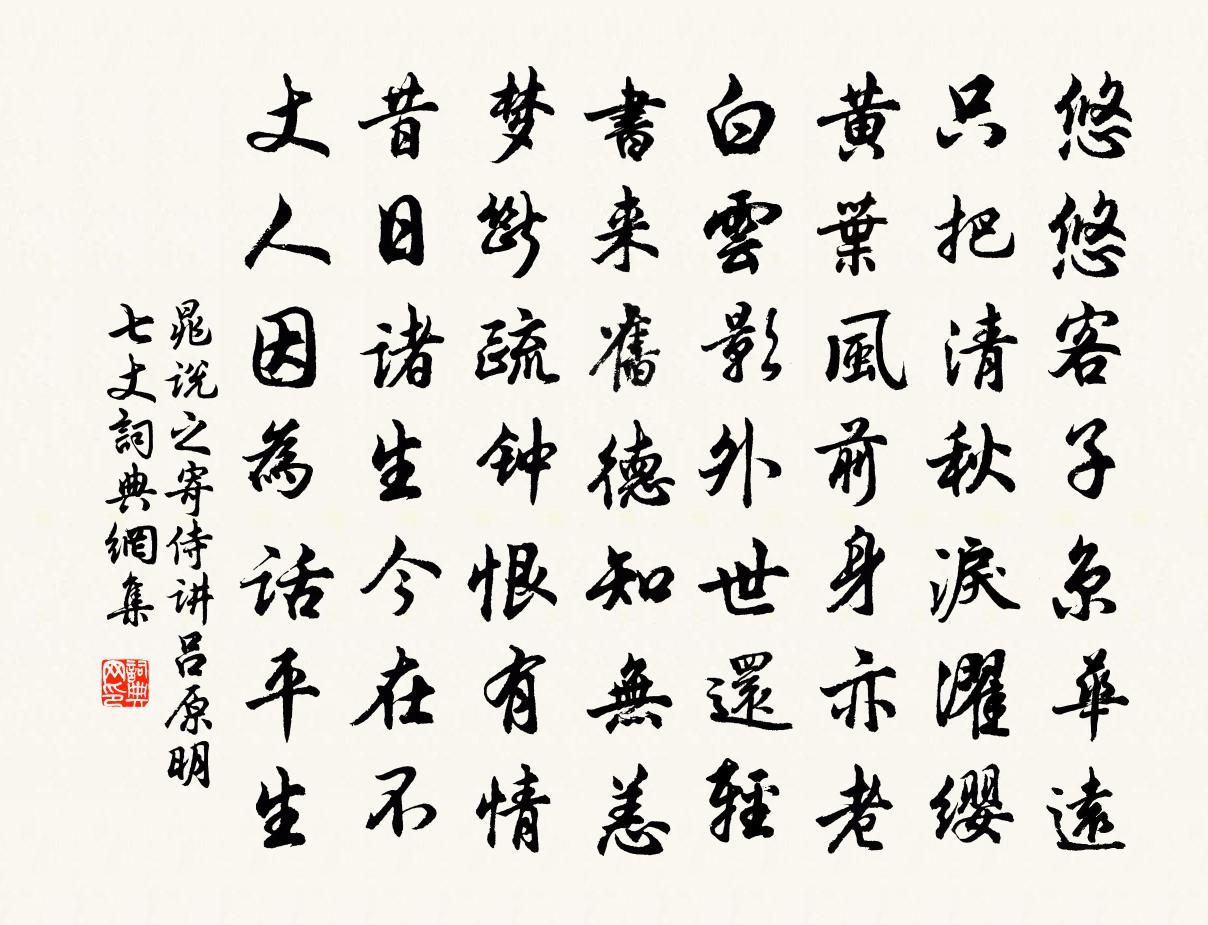 悠悠客子京華遠
只把清秋淚濯纓
黃葉風前身亦老
白雲影外世還輕
書来舊德知無恙
梦斷疏钟恨有情
昔日諸生今在不
丈人因為話平生
晁说之寄侍讲吕原明
七丈詞典網集
詞典网印